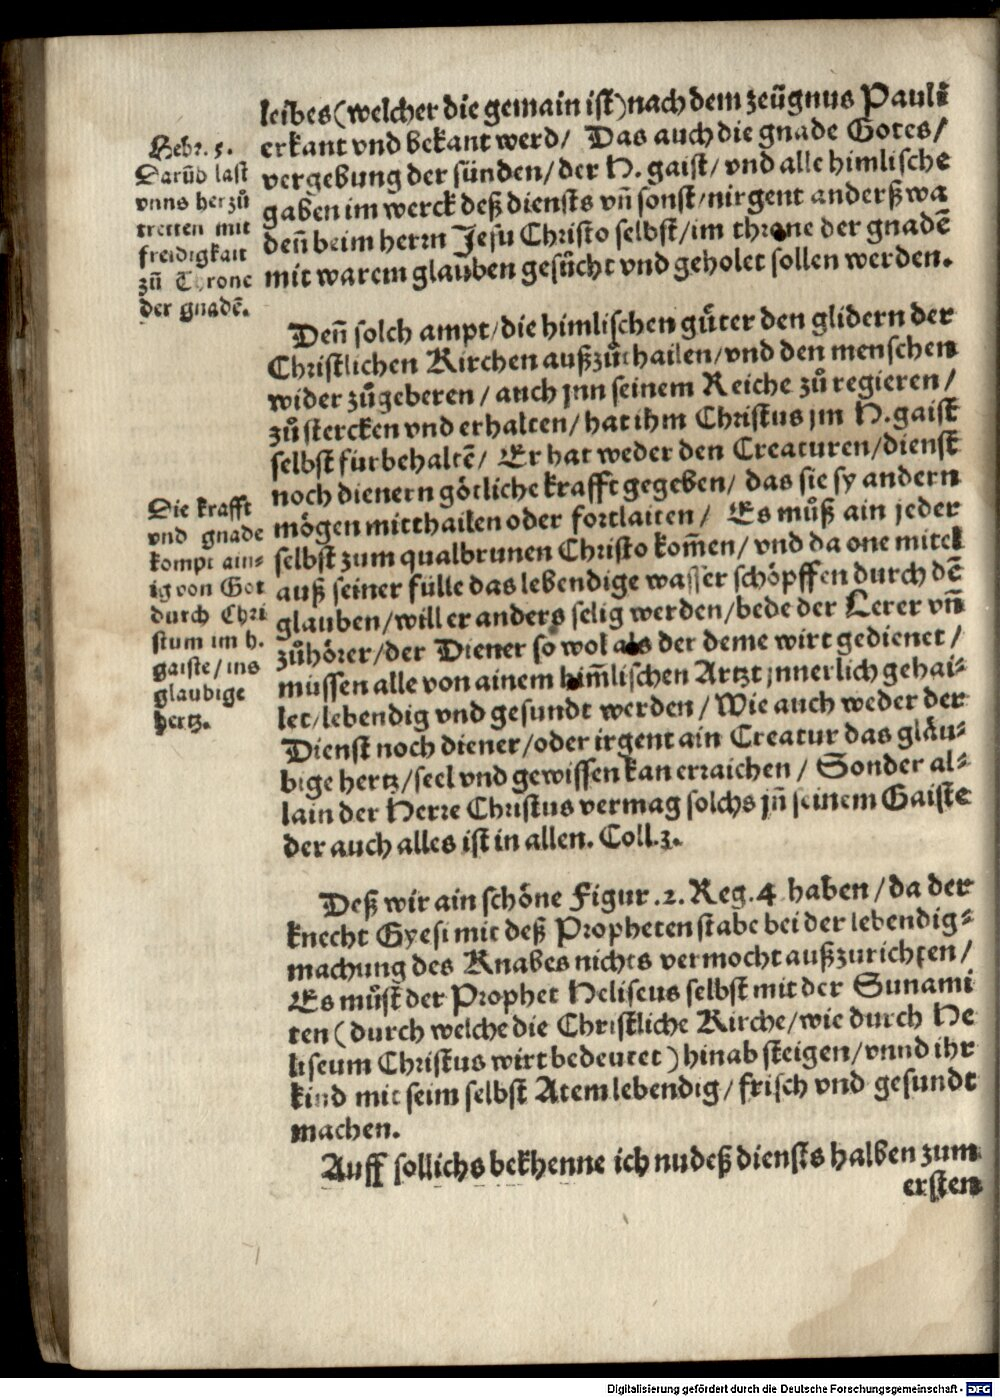 leibes (welcher die gemain ist) nach dem zeügnus Pauli
erkant vnd bekant werd / Das auch die gnade Gotes /
vergebung der sünden / der H. gaist / vnd alle himlische
gaben im werck deß diensts vn̄ sonst / nirgent anderß wa
den̄ beim herrn Jesu Christo selbst / im throne der gnadē
mit warem glauben gesůcht vnd geholet sollen werden.
Hebr. 5.
Darūb last
vnns herzů
tretten mit
freidigkait
zů Throne
der gnadē.
Den̄ solch ampt / die himlischen gůter den glidern der
Christlichen Kirchen außzůthailen / vnd den menschen
wider zůgeberen / auch jnn seinem Reiche zů regieren /
zů stercken vnd erhalten / hat ihm Christus jm H. gaist
selbst fürbehaltē / Er hat weder den Creaturen / dienst
noch dienern götliche krafft gegeben / das sie sy andern
mögen mitthailen oder fortlaiten / Es můß ain jeder
selbst zum qualbrunen Christo kom̄en / vnd da one mitel
auß seiner fülle das lebendige wasser schöpffen durch dē
glauben / will er anders selig werden / bede der Lerer vn̄
zůhörer / der Diener so wol als der deme wirt gedienet /
müssen alle von ainem him̄lischen Artzt jnnerlich gehai-
let / lebendig vnd gesundt werden / Wie auch weder der
Dienst noch diener / oder irgent ain Creatur das gläu-
bige hertz / seel vnd gewissen kan erraichen / Sonder al-
lain der Herre Christus vermag solchs jn̄ seinem Gaiste
der auch alles ist in allen. Coll. 3.
Die krafft
vnd gnade
kompt ain-
ig von Got
durch Chri
stum im h.
gaiste / ins
glaubige
hertz.
Deß wir ain schöne Figur . 2. Reg. 4 haben / da der
knecht Gyesi mit deß Propheten stabe bei der lebendig-
machung des Knabes nichts vermocht außzurichten /
Es můst der Prophet Heliseus selbst mit der Sunami
ten ( durch welche die Christliche Kirche / wie durch He
liseum Christus wirt bedeutet ) hinab steigen / vnnd ihr
kind mit seim selbst Atem lebendig / frisch vnd gesundt
machen.
Auff sollichs bekhenne ich nu deß diensts halben zum
ersten
Digitalisierung gefördert durch die Deutsche Forschungsgemeinschaft - DFG